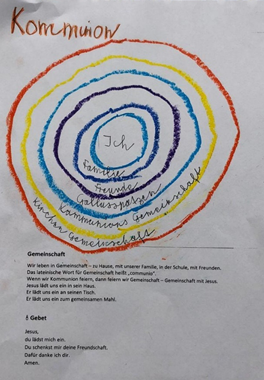 Kommunion
Ich
Familie
Freunde
Gallusspatzen
Kommunions Gemeinschaft
Kirchen Gemeinschaft
Gemeinschaft
Wir leben in Gemeinschaft – zu Hause, mit unserer Familie, in der Schule, mit Freunden.
Das lateinische Wort für Gemeinschaft heißt „communio".
Wenn wir Kommunion feiern, dann feiern wir Gemeinschaft – Gemeinschaft mit Jesus.
Jesus lädt uns ein in sein Haus.
Er lädt uns ein an seinen Tisch.
Er lädt uns ein zum gemeinsamen Mahl.
Gebet
Jesus,
du lädst mich ein.
Du schenkst mir deine Freundschaft.
Dafür danke ich dir.
Amen.